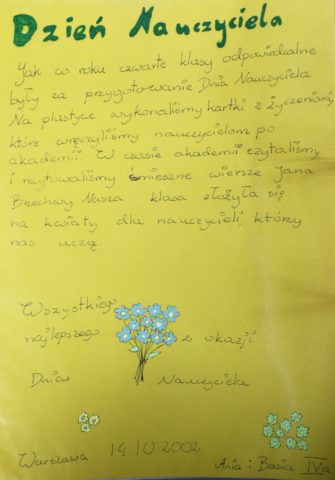 Dzień Nauczyciela
Jak co roku czwarte klasy odpowiedzialne
były za przygotowanie Dnia Nauczyciela
Na plastyce wykonaliśmy kartki z życzeniami,
które wręczyliśmy nauczycielom po
akademii. W czasie akademii czytaliśmy
i recytowaliśmy śmieszne wiersze Jana
Brzechwy Nasza klasa złożyła się
na kwiaty dla nauczycieli, którzy
nas uczą.
Wszystkiego
najlepszego z okazji
Dnia Nauczyciela
Warszawa 14 10 2002 Ania i Basia IVa